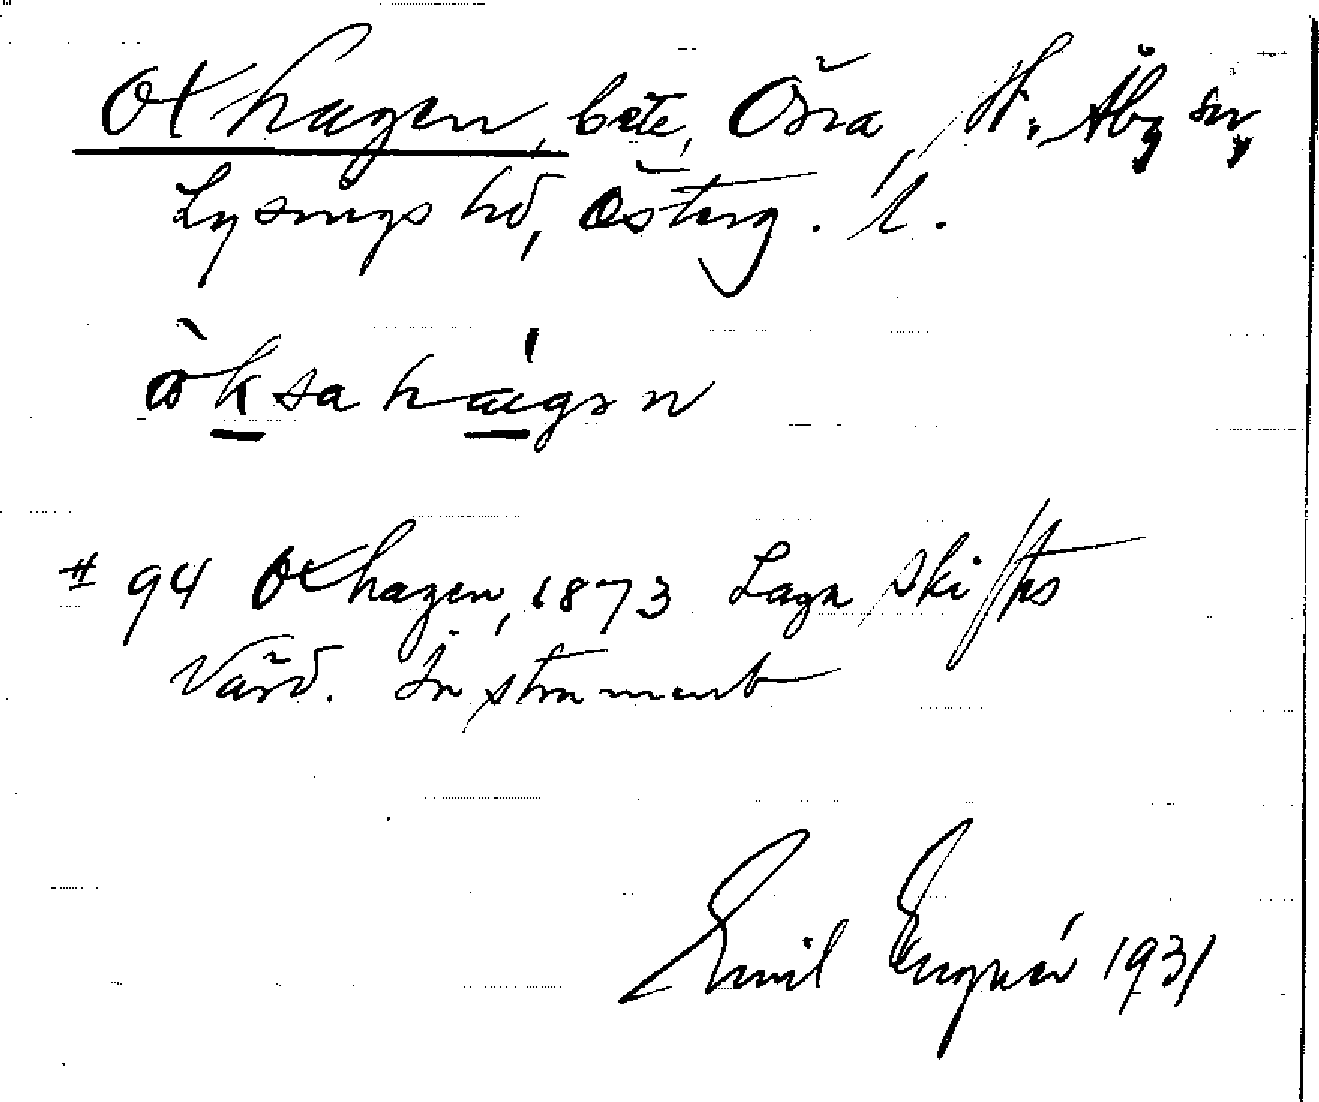 Oxhagen, bete, Östra, H. Åby sn,
Lysings hd, Österg. l.
òksahágən
# 94 Oxhagen, 1873 Laga Skiftes
Värd. Instrument
Emil Engnér 1931